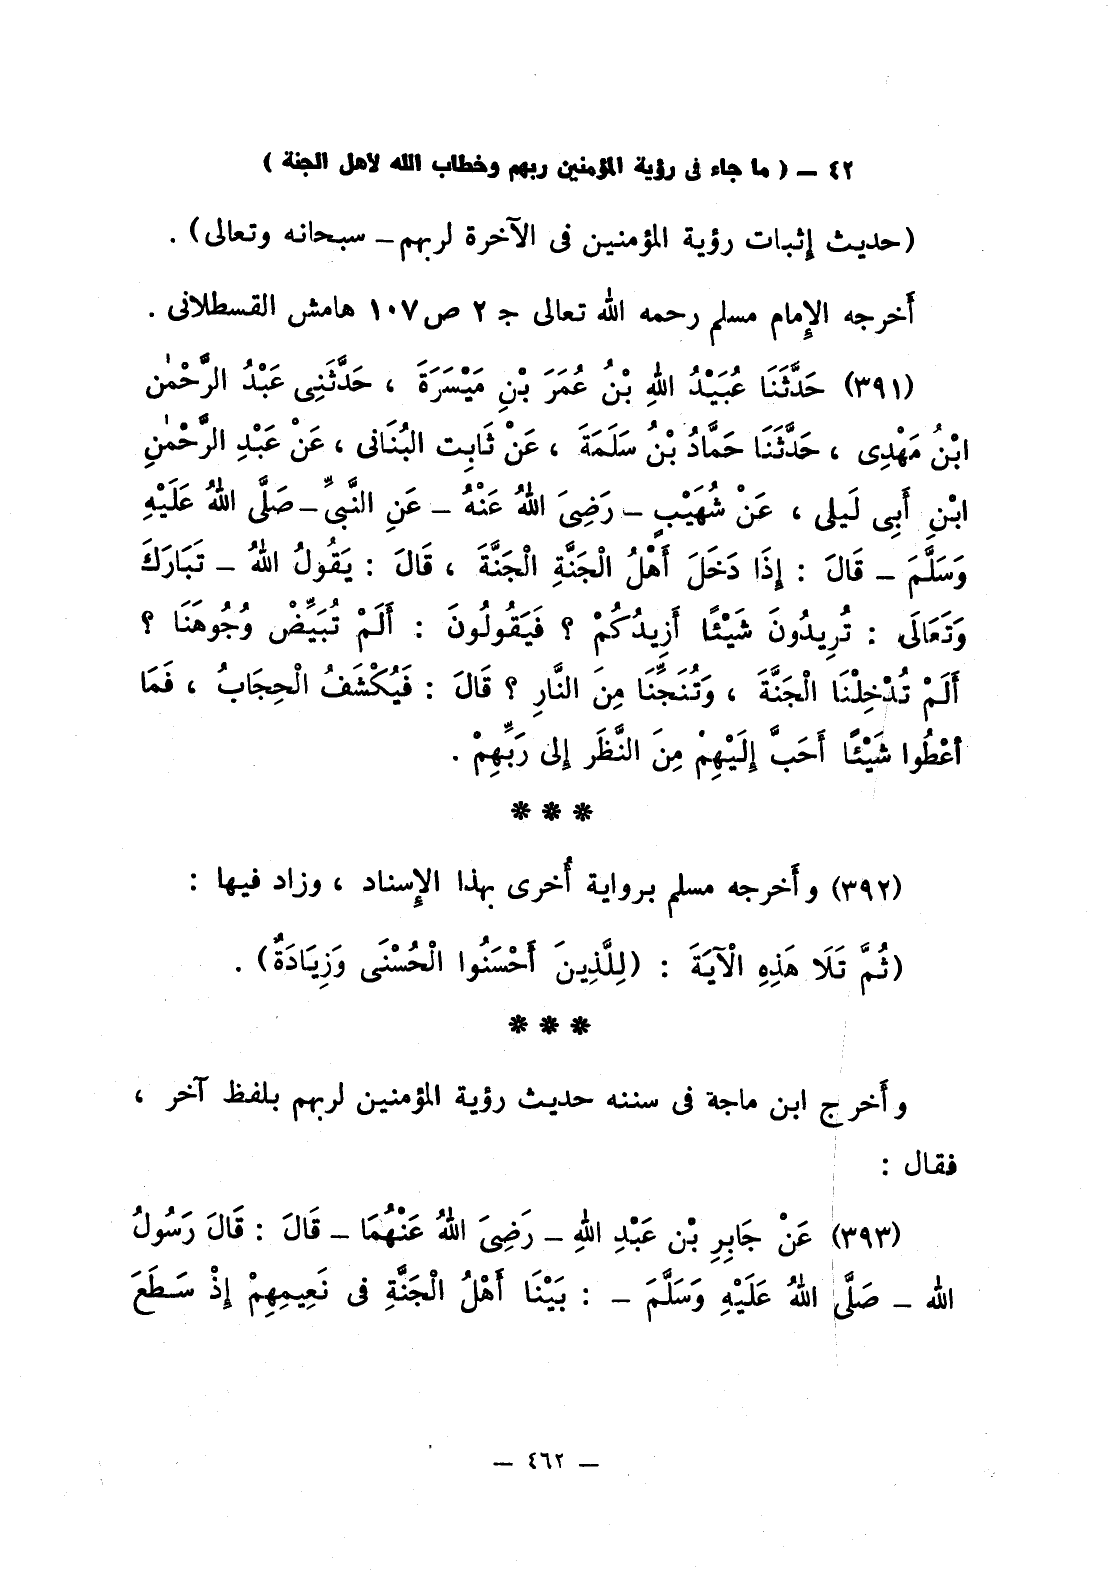 ٤٢ – ( ما جاء فى رؤية المؤمنين ربهم وخطاب الله لأهل الجنة )
(حديث إثبات رؤية المؤمنين فى الآخرة لربهم – سبحانه وتعالى) .
أَخرجه الإِمام مسلم رحمه الله تعالى جـ ٢ ص ١٠٧ هامش القسطلانى .
(٣٩١) حَدَّثَنَا عُبَيْدُ اللهِ بْنُ عُمَرَ بْنِ مَيْسَرَةَ ، حَدَّثَنِى عَبْدُ الرَّحْمٰن
ابْنُ مَهْدِى ، حَدَّثَنَا حَمَّادُ بْنُ سَلَمَةَ ، عَنْ ثَابِت البُنَانى ، عَنْ عَبْدِ الرَّحْمٰنِ
ابْنِ أَبِى لَيلى ، عَنْ شُهَيْبٍ – رَضِىَ اللهُ عَنْهُ – عَنِ النَّبىِّ – صَلَّى اللهُ عَلَيْهِ
وَسَلَّمَ – قَالَ : إِذَا دَخَلَ أَهْلُ الْجَنَّةِ الْجَنَّةَ ، قَالَ : يَقُولُ اللهُ – تَبَارَكَ
وَتَعَالَى : تُرِيدُونَ شَيْئًا أَزِيدُكُمْ ؟ فَيَقُولُونَ : أَلَمْ تُبَيِّضْ وُجُوهَنَا ؟
أَلَمْ تُدْخِلْنَا الْجَنَّةَ ، وَتُنَجِّنَا مِنَ النَّارِ ؟ قَالَ : فَيُكْشَفُ الْحِجَابُ ، فَمَا
أعْطُوا شَيْئًا أَحَبَّ إِلَيْهِمْ مِنَ النَّظَرِ إِلى رَبِّهِمْ .
*** 
(٣٩٢) وأَخرجه مسلم برواية أُخرى بهذا الإِسناد ، وزاد فيها :
(ثُمَّ تَلَا هَذِهِ الْآيَةَ : (لِلَّذِينَ أَحْسَنُوا الْحُسْنَى وَزِيَادَةٌ) .
***
وأَخرج ابن ماجة فى سننه حديث رؤية المؤمنين لربهم بلفظ آخر ،
فقال :
(٣٩٣) عَنْ جَابِرِ بْن عَبْدِ اللهِ – رَضِىَ اللهُ عَنْهُمَا – قَالَ : قَالَ رَسُولُ
الله – صَلَّى اللهُ عَلَيْهِ وَسَلَّمَ – : بَيْنَا أَهْلُ الْجَنَّةِ فى نَعِيمِهِمْ إِذْ سَطَعَ
– ٤٦٢ –